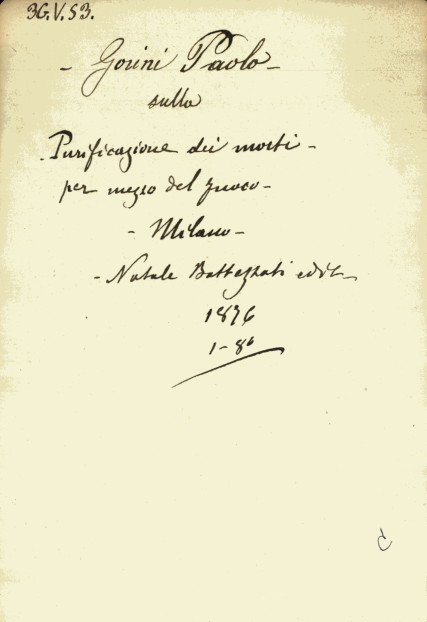 3G.V.53.
- Gorini Paolo -
sulla
- Purificazione dei morti -
per mezzo del fuoco -
- Milano -
- Natale Battezzati edit -
1876
1 - 8°